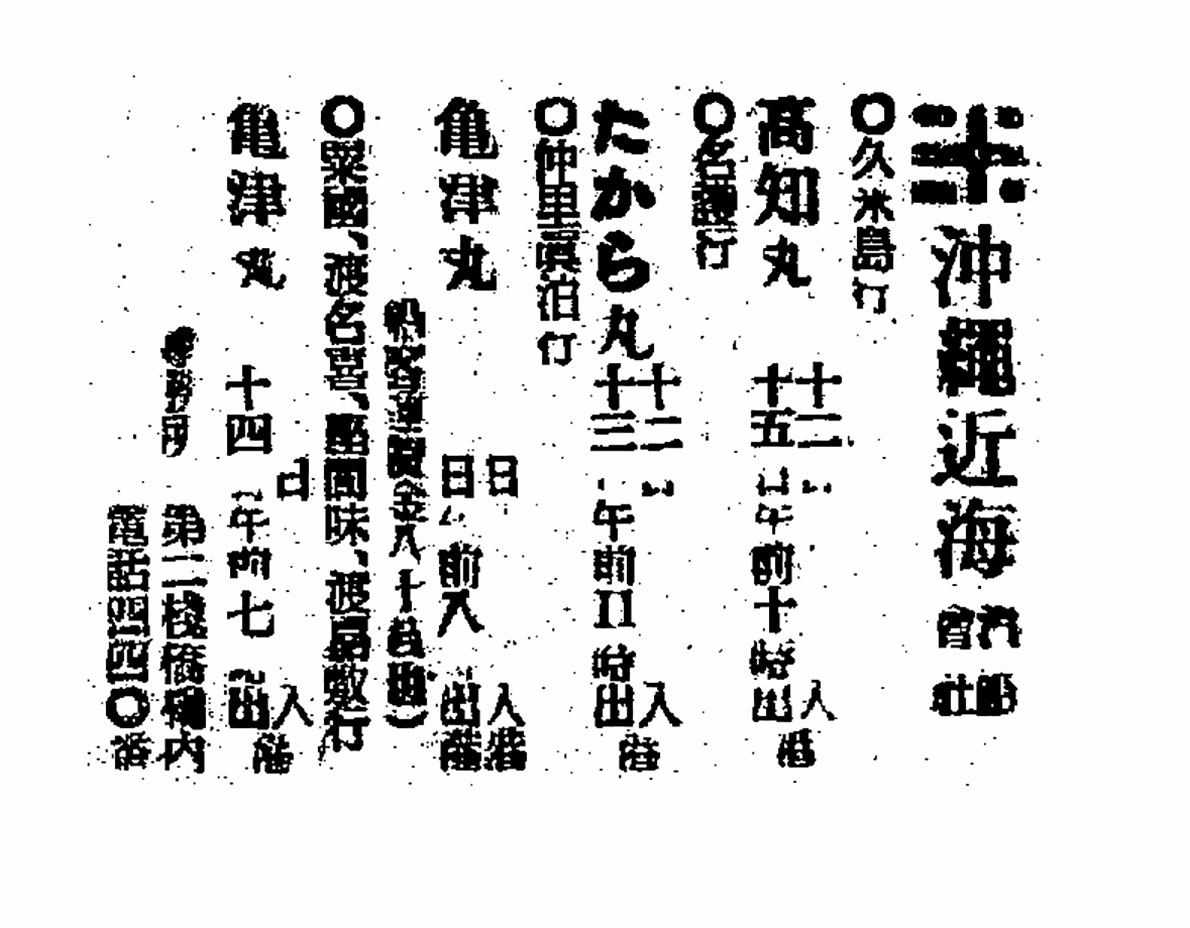 沖縄近海汽船會社
○久米島行
高知丸 十二日入港
十五日午前十時出港
○名護行
たから丸 十二日入港
十三日午前11時出港
○仲里眞泊行
亀津丸 日入港
日午前八 出港
○粟國、渡名喜、座間味、渡嘉敷行
亀津丸 日入港
十四日午前七時出港
第二桟橋構内
電話四四〇番